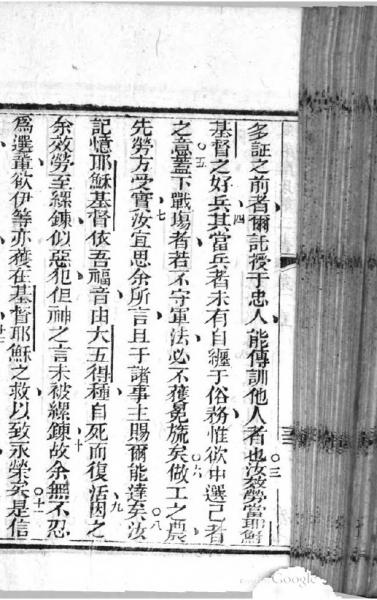 多証之前者爾託授于忠人能傳訓他人者也汝效勞當耶穌
基督之好兵其當兵者未有自纏于俗務惟欲中選己者
之意蓋下戰塲者若不守軍法必不獲冕旒矣做工之農
先勞方受實汝宜思余所言且于諸事主賜爾能達矣汝
記憶耶穌基督依吾福音由大五得種自死而復活因之
余效勞至縲鍊似惡犯但神之言未被縲鍊故余無不忍
爲選輩欲伊等亦獲在基督耶穌之救以致永榮矣是信
Google